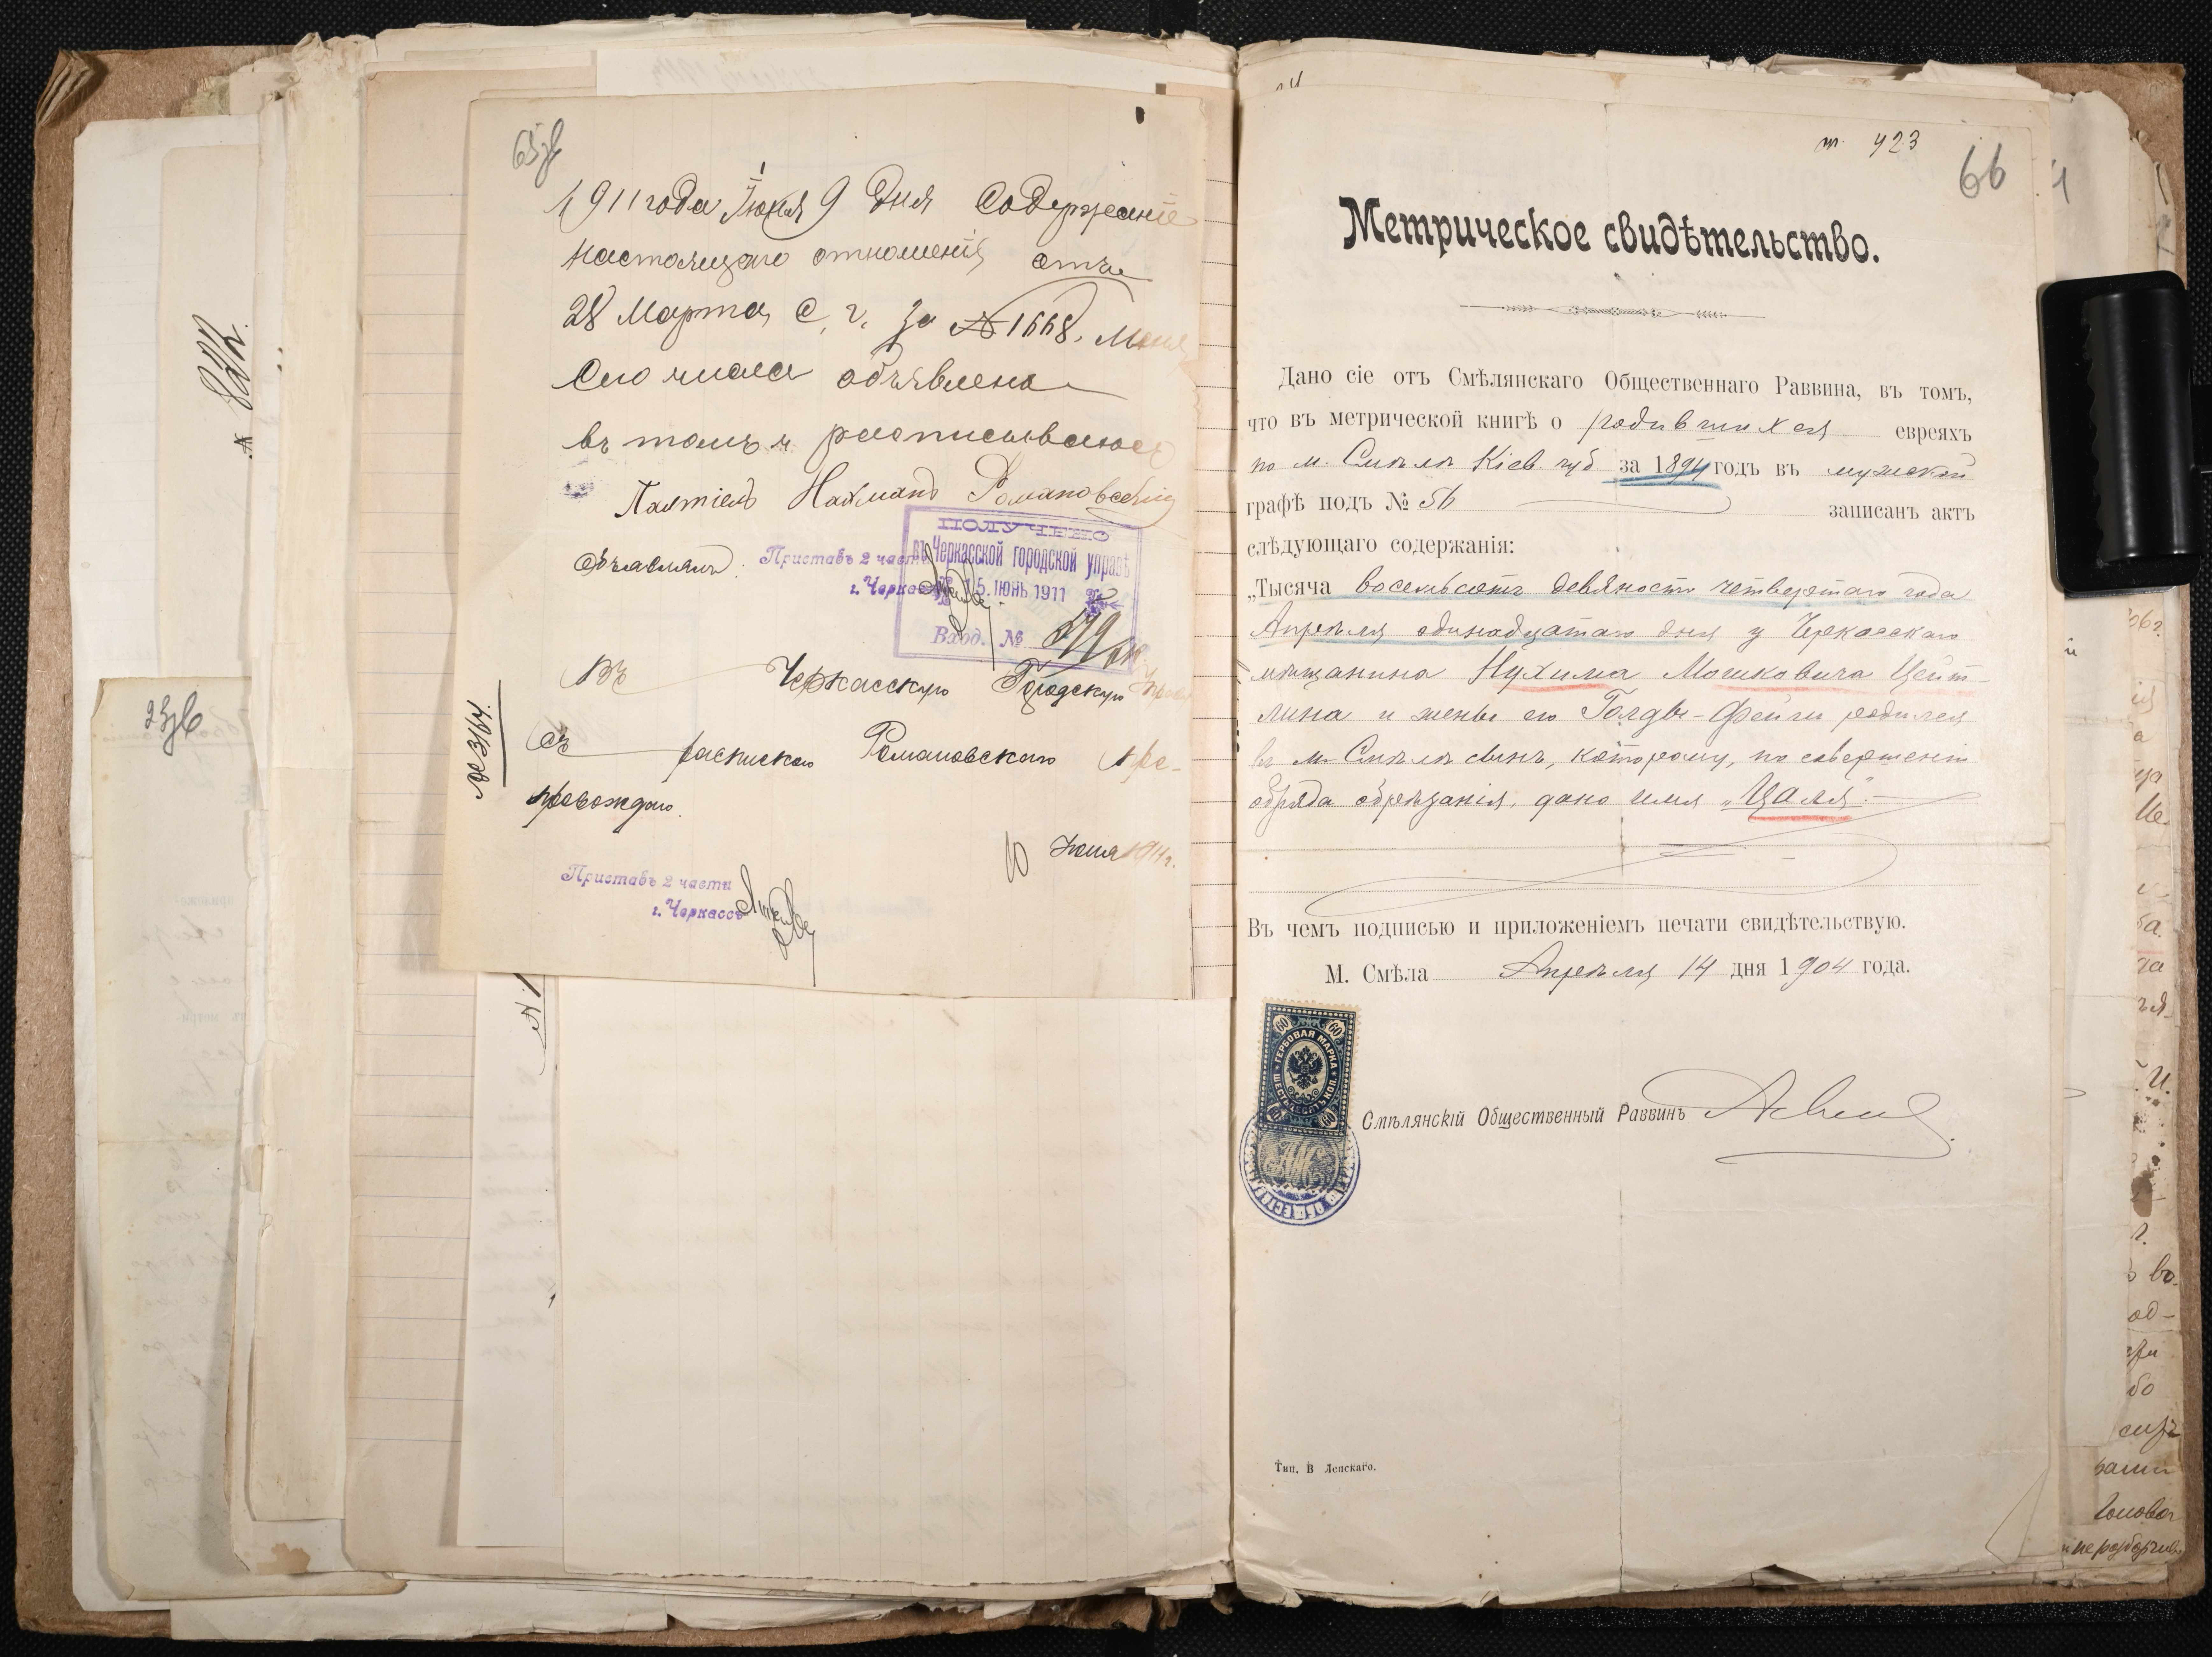 65об
1911 года Іюня 9 дня Содержаніе
настоящаго отношенія отъ
28 Марта с. г. за № 1668. Мнѣ
сего числа объявлено
въ томъ и расписываюсь
Палтіель Нахманъ Романовскій
Объявлялъ: Приставъ 2 части
г. Черкассъ
ПОЛУЧЕНО
въ Черкасской городской управѣ
15. ІЮНЬ 1911
Вход. №
Въ Черкасскую Городскую Управу
Съ роспискою Романовскаго пре-
провождаю.
10 Іюня 1911 г.
№ 3164.
Приставъ 2 части
г. Черкассъ
23об
423
66
Метрическое свидѣтельство.
Дано сіе отъ Смѣлянскаго Общественнаго Раввина, въ томъ,
что въ метрической книгѣ о родившихся евреяхъ
по м. Смѣлѣ Кіев. губ. за 1894 годъ въ мужской
графѣ подъ № 56 записанъ актъ
слѣдующаго содержанія:
„Тысяча восемьсотъ девяносто четвертаго года
Апрѣля одинадцатаго дня у Черкасскаго
мѣщанина Нухима Мошковича Цейт-
лина и жены его Голды-Фейги родился
въ м. Смѣлѣ сынъ, которому, по совершеніи
обряда обрѣзанія, дано имя „Цаля".
Въ чемъ подписью и приложеніемъ печати свидѣтельствую.
М. Смѣла Апрѣля 14 дня 1904 года.
60 60
ГЕРБОВАЯ МАРКА
ШЕСТЬДЕСЯТЪ КОП.
60 60
Смѣлянскій Общественный Раввинъ
Тип. В Лепскаго.